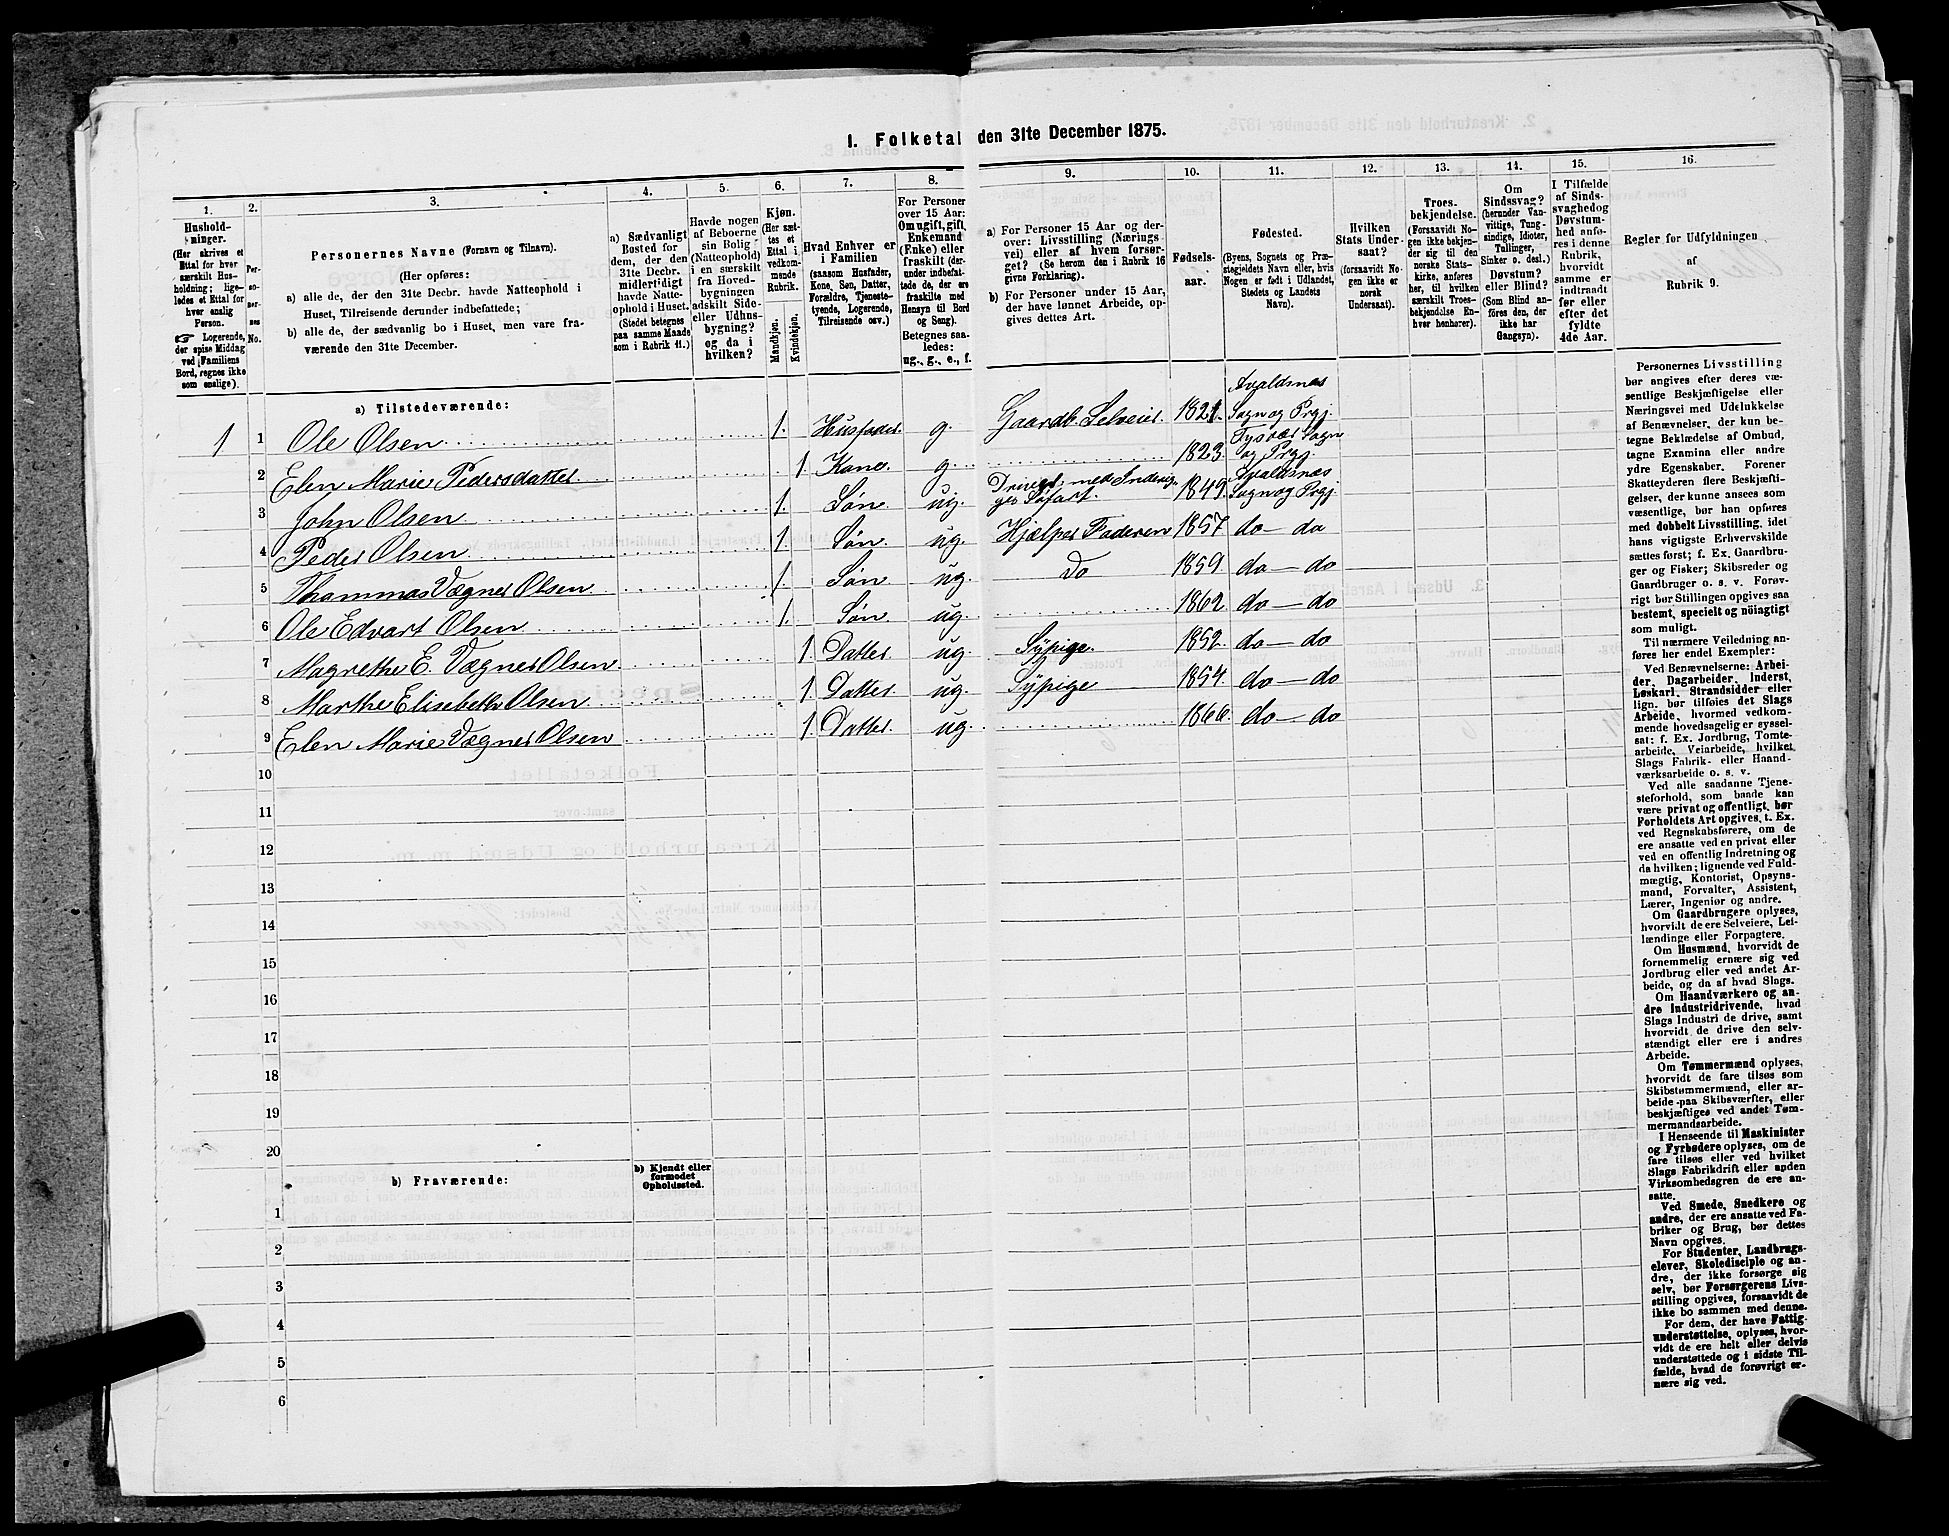 I. Folketal den 31te December 1875.
1.
Hushold-
ninger.
(Her skrives et
Ettal for hver
særskilt Hus-
holdning; lige-
ledes et Ettal for
hver enslig
Person.
☞ Logerende,
der spise Middag
ved Familiens
Bord, regnes ikke
som enslige).
2.
Per-
so-
ner-
nes
No.
3.
Personernes Navne (Fornavn og Tilnavn).
(Her opføres:
a) alle de, der den 31te Decbr. havde Natteophold i
Huset, Tilreisende derunder indbefattede;
b) alle de, der sædvanlig bo i Huset, men vare fra-
værende den 31te December.
4.
a) Sædvanligt
Bosted for
dem, der den
31te Decbr.
midlertidigt
havde Natte-
ophold i Huset.
(Stedet betegnes
paa samme Maade
som i Rubrik 11.)
5.
Havde nogen
af Beboerne
sin Bolig
(Natteophold)
i en særskilt
fra Hoved-
bygningen
adskilt Side-
eller Udhus-
bygning?
og da i
hvilken?
6.
Kjøn.
(Her sæt-
tes et
Ettal i
vedkom-
mende
Rubrik.
Mandkjøn.
Kvindekjøn.
7.
Hvad Enhver er
i Familien
(saasom Husfader,
Kone, Søn, Datter,
Forældre, Tjeneste-
tyende, Logerende,
Tilreisende osv.)
8.
For Personer
over 15 Aar:
Om ugift, gift,
Enkemand
(Enke) eller
fraskilt (der-
under indbefat-
tede de, der ere
fraskilte med
Hensyn til Bord
og Seng).
Betegnes saa-
ledes:
ug., g., e., f.
9.
a) For Personer 15 Aar og der-
over: Livsstilling (Nærings-
vei) eller af hvem forsør-
get? (Se herom den i Rubrik 16
givne Forklaring).
b) For Personer under 15 Aar,
der have lønnet Arbeide, op-
gives dettes Art.
10.
Fødsels-
aar.
11.
Fødested.
(Byens, Sognets og Præ-
stegjeldets Navn eller, hvis
Nogen er født i Udlandet,
Stedets og Landets
Navn).
12.
Hvilken
Stats Under-
saat?
(forsaavidt No-
gen ikke er
norsk
Undersaat).
13.
Troes-
bekjendelse.
(Forsaavidt No-
gen ikke bekjen-
der sig til den
norske Stats-
kirke, anføres
her, til hvilken
særskilt Troes-
bekjendelse En-
hver henhører).
14.
Om
Sindssvag?
(herunder Van-
vittige, Tung-
sindige, Idioter,
Tullinger,
Sinker o. desl.)
Døvstum?
eller Blind?
(Som Blind an-
føres den, der
ikke har
Gangsyn).
15.
I Tilfælde
af Sinds-
svaghed og
Døvstum-
hed anfø-
res i denne
Rubrik,
hvorvidt
samme er
indtraadt
før eller
efter det
fyldte
4de Aar.
16.
Regler for Udfyldningen
af
Rubrik 9.
a) Tilstedeværende:
1 1 Ole Olsen 1. Husfader g. Gaardb. Selveier. 1821. Avaldsnes Sogn og Prgj.
2 Elen Marie Pedersdatter 1 Kone g. 1823. Tysvær Sogn og Prgj.
3 John Olsen 1. Søn. ug. Driver med Indenrigs Søfart. 1849. Avaldsnes Sogn og Prgj.
4 Peder Olsen 1. Søn. ug. Hjælper Faderen 1857 do — do
5 Thommas Vægner Olsen 1. Søn ug. Do 1859. do — do
6 Ole Edvart Olsen 1. Søn ug. 1862 do — do
7 Magrethe E. Vægner Olsen. 1. Datter ug. Sÿpige. 1852. do — do
8 Marthe Elisebethe Olsen 1. Datter. ug. Sÿpige 1854. do — do
9 Elen Marie Vægner Olsen 1. Datter ug. 1866. do — do
10
11
12
13
14
15
16
17
18
19
20
b) Fraværende:
b) Kjendt eller
formodet
Opholdssted.
1
2
3
4
5
6
Personernes Livsstilling
bør angives efter deres væ-
sentlige Beskjæftigelse eller
Næringsvei med Udelukkelse
af Benævnelser, der kun be-
tegne Beklædelse af Ombud,
tagne Examina eller andre
ydre Egenskaber. Forener
Skatteyderen flere Beskjæfti-
gelser, der kunne ansees som
væsentlige, bør han opføres
med dobbelt Livsstilling, idet
hans vigtigste Erhvervskilde
sættes først; f. Ex. Gaardbru-
ger og Fisker; Skibsreder og
Gaardbruger o. s. v. Forøv-
rigt bør Stillingen opgives saa
bestemt, specielt og nöiagtigt
som muligt.
Til nærmere Veiledning an-
føres her endel Exempler:
Ved Benævnelserne: Arbei-
der, Dagarbeider, Inderst,
Løskarl, Strandsidder eller
lign. bør tilføies det Slags
Arbeide, hvormed vedkom-
mende hovedsagelig er syssel-
sat; f. Ex. Jordbrug, Tomte-
arbeide, Veiarbeide, hvilket
Slags Fabrik- eller Haand-
værksarbeide o. s. v.
Ved alle saadanne Tjene-
steforhold, som baade kan
være privat og offentligt, bør
Forholdets Art opgives, t. Ex.
ved Regnskabsførere, om de
ere ansatte ved en privat eller
ved en offentlig Indretning og
da hvilken; lignende ved Fuld-
mægtig, Kontorist, Opsyns-
mand, Forvalter, Assistent,
Lærer, Ingeniør og andre.
Om Gaardbrugere oplyses,
hvorvidt de ere Selveiere, Lei-
lændinge eller Forpagtere.
Om Husmænd, hvorvidt de
fornemmelig ernære sig ved
Jordbrug eller ved andet Ar-
beide, og da af hvad Slags.
Om Haandværkere og an-
dre Industridrivende, hvad
Slags Industri de drive, samt
hvorvidt de drive den selv-
stændigt eller ere i andres
Arbeide.
Om Tømmermænd oplyses,
hvorvidt de fare tilsøs som
Skibstømmermænd, eller ar-
beide paa Skibsværfter, eller
beskjæftiges ved andet Tøm-
mermandsarbeide.
I Henseende til Maskinister
og Fyrbødere oplyses, om de
fare tilsøs eller ved hvilket
Slags Fabrikdrift eller anden
Virksomhedsgren de ere an-
satte.
Ved Smede, Snedkere og
andre, der ere ansatte ved Fa-
briker og Brug, bør dettes
Navn opgives.
For Studenter, Landbrugs-
elever, Skoledisciple og an-
dre, der ikke forsørge sig
selv, bør Forsørgerens Livs-
stilling opgives, forsaavidt de
ikke bo sammen med denne.
For dem, der have Fattig-
understøttelse, oplyses, hvor-
vidt de ere helt eller delvis
understøttede og i sidste Til-
fælde, hvad de forøvrigt er-
nære sig ved.